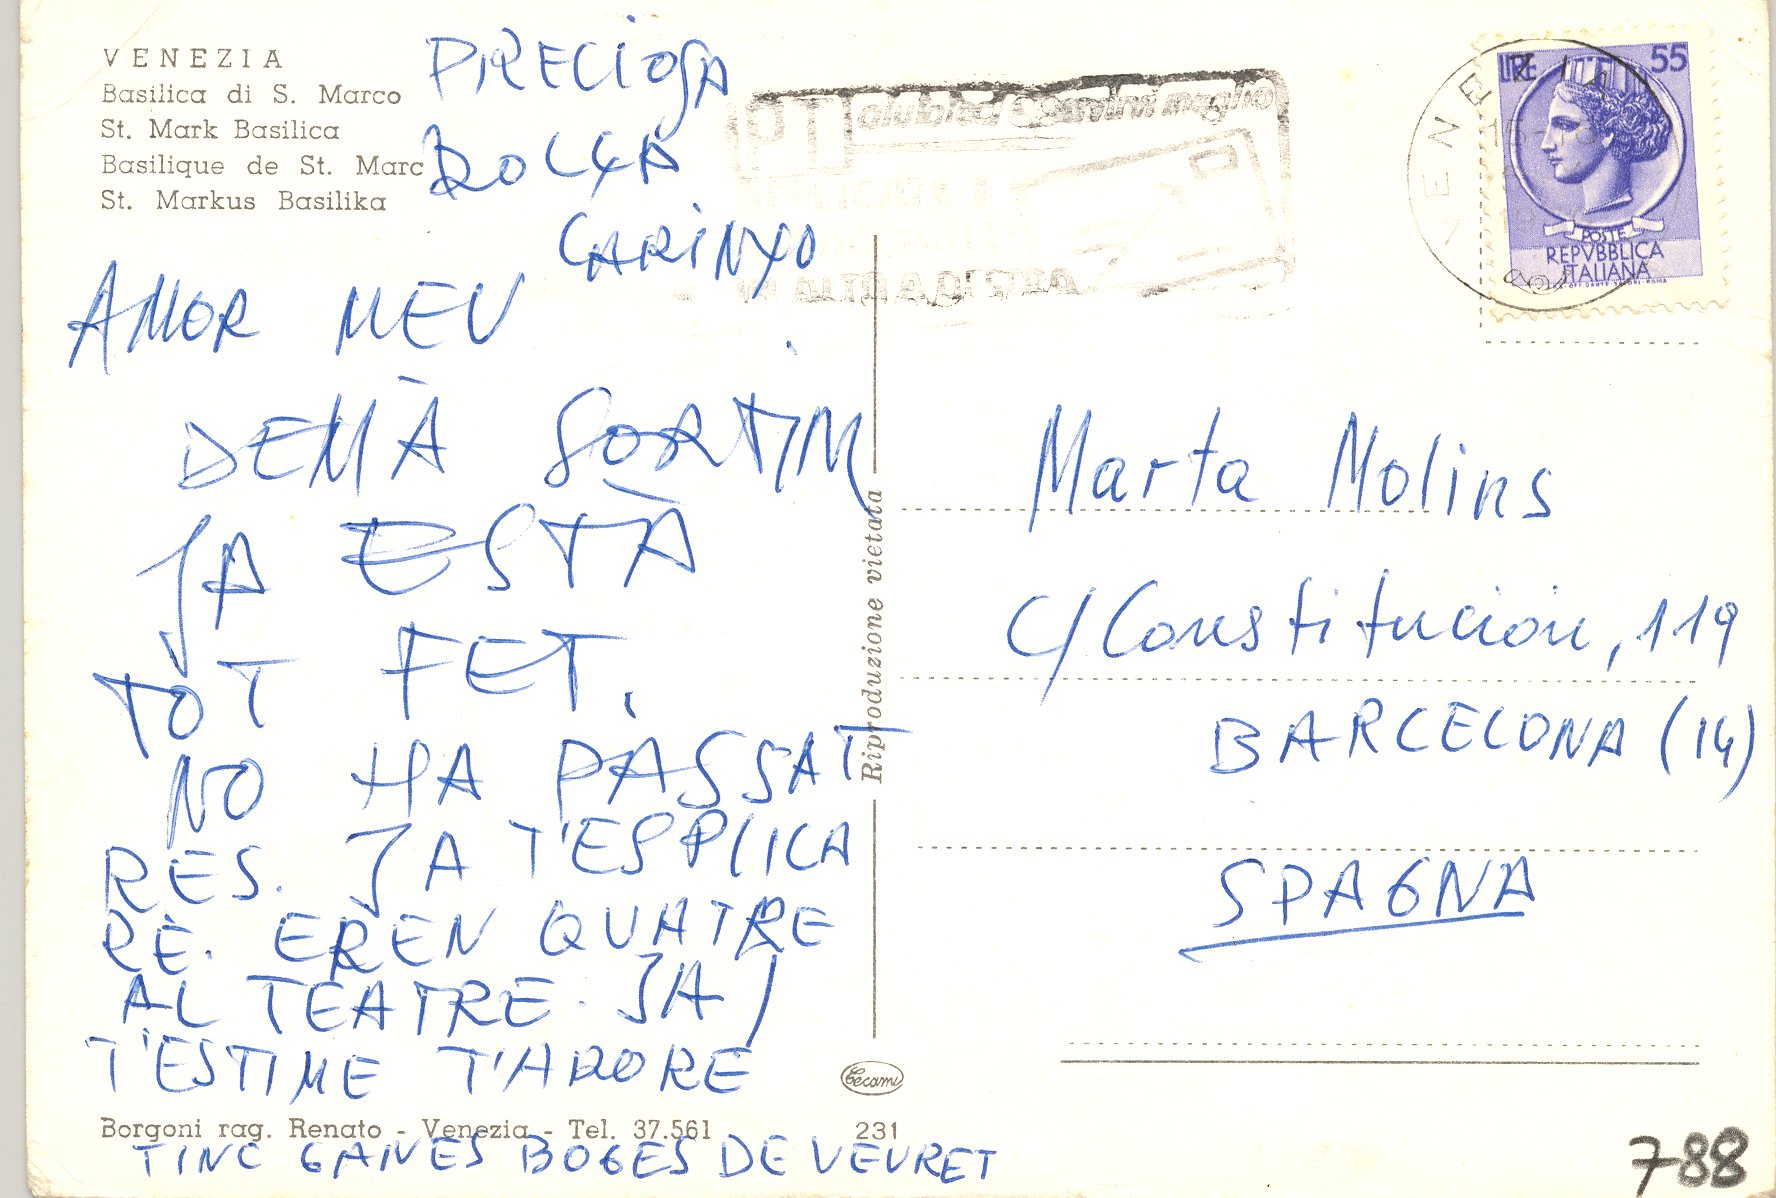 VENEZIA
Basilica di S. Marco
St. Mark Basilica
Basilique de St. Marc
St. Markus Basilika
PRECIOSA
DOLÇA
CARINYO
AMOR MEU
DEMÀ SORTIM
JA ESTÀ
TOT FET.
NO HA PASSAT
RES. JA T'ESPLICA
RÉ. EREN QUATRE
AL TEATRE. JA
T'ESTIME T'ADORE
TINC GANES BOGES DE VEURET
Borgoni rag. Renato - Venezia - Tel. 37.561
231
Cecami
Riproduzione vietata
PT
VENEZIA
LIRE 55
POSTE
REPVBBLICA
ITALIANA
Marta Molins
C/ Constitución, 119
BARCELONA (14)
SPAGNA
788